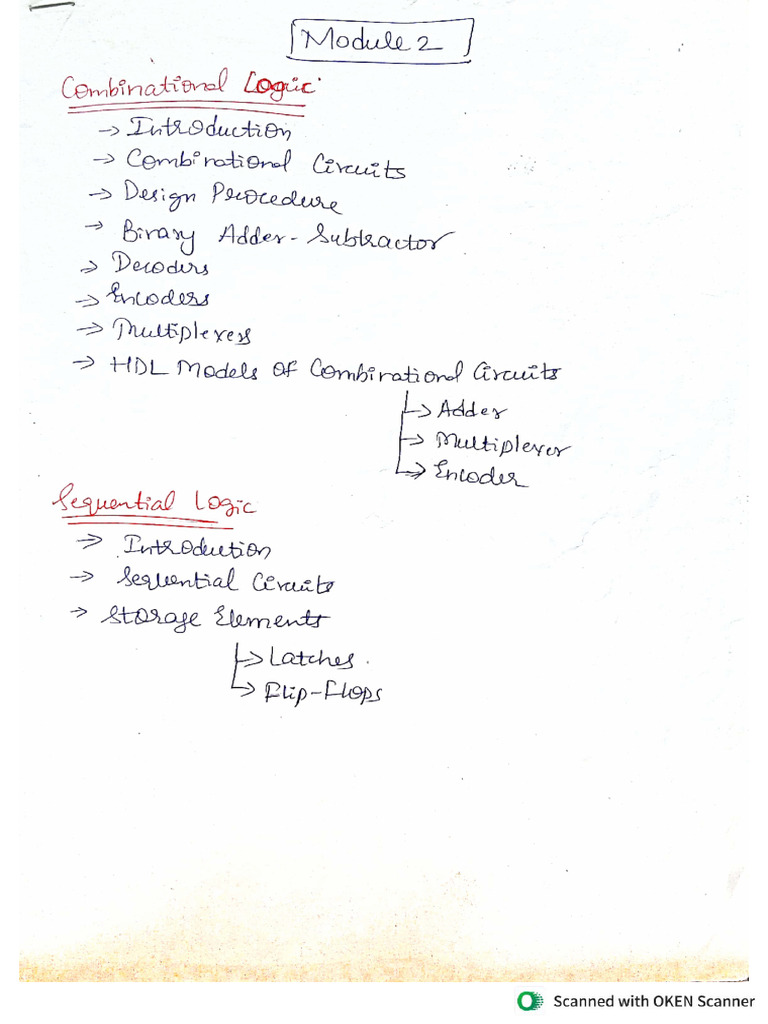 Module 2
Combinational Logic
→ Introduction
→ Combinational Circuits
→ Design Procedure
→ Binary Adder-Subtractor
→ Decoders
→ Encoders
→ Multiplexers
→ HDL Models of Combinational Circuits
→ Adder
→ Multiplexer
→ Encoder
Sequential Logic
→ Introduction
→ Sequential Circuits
→ Storage Elements
→ Latches.
→ Flip-Flops
Scanned with OKEN Scanner